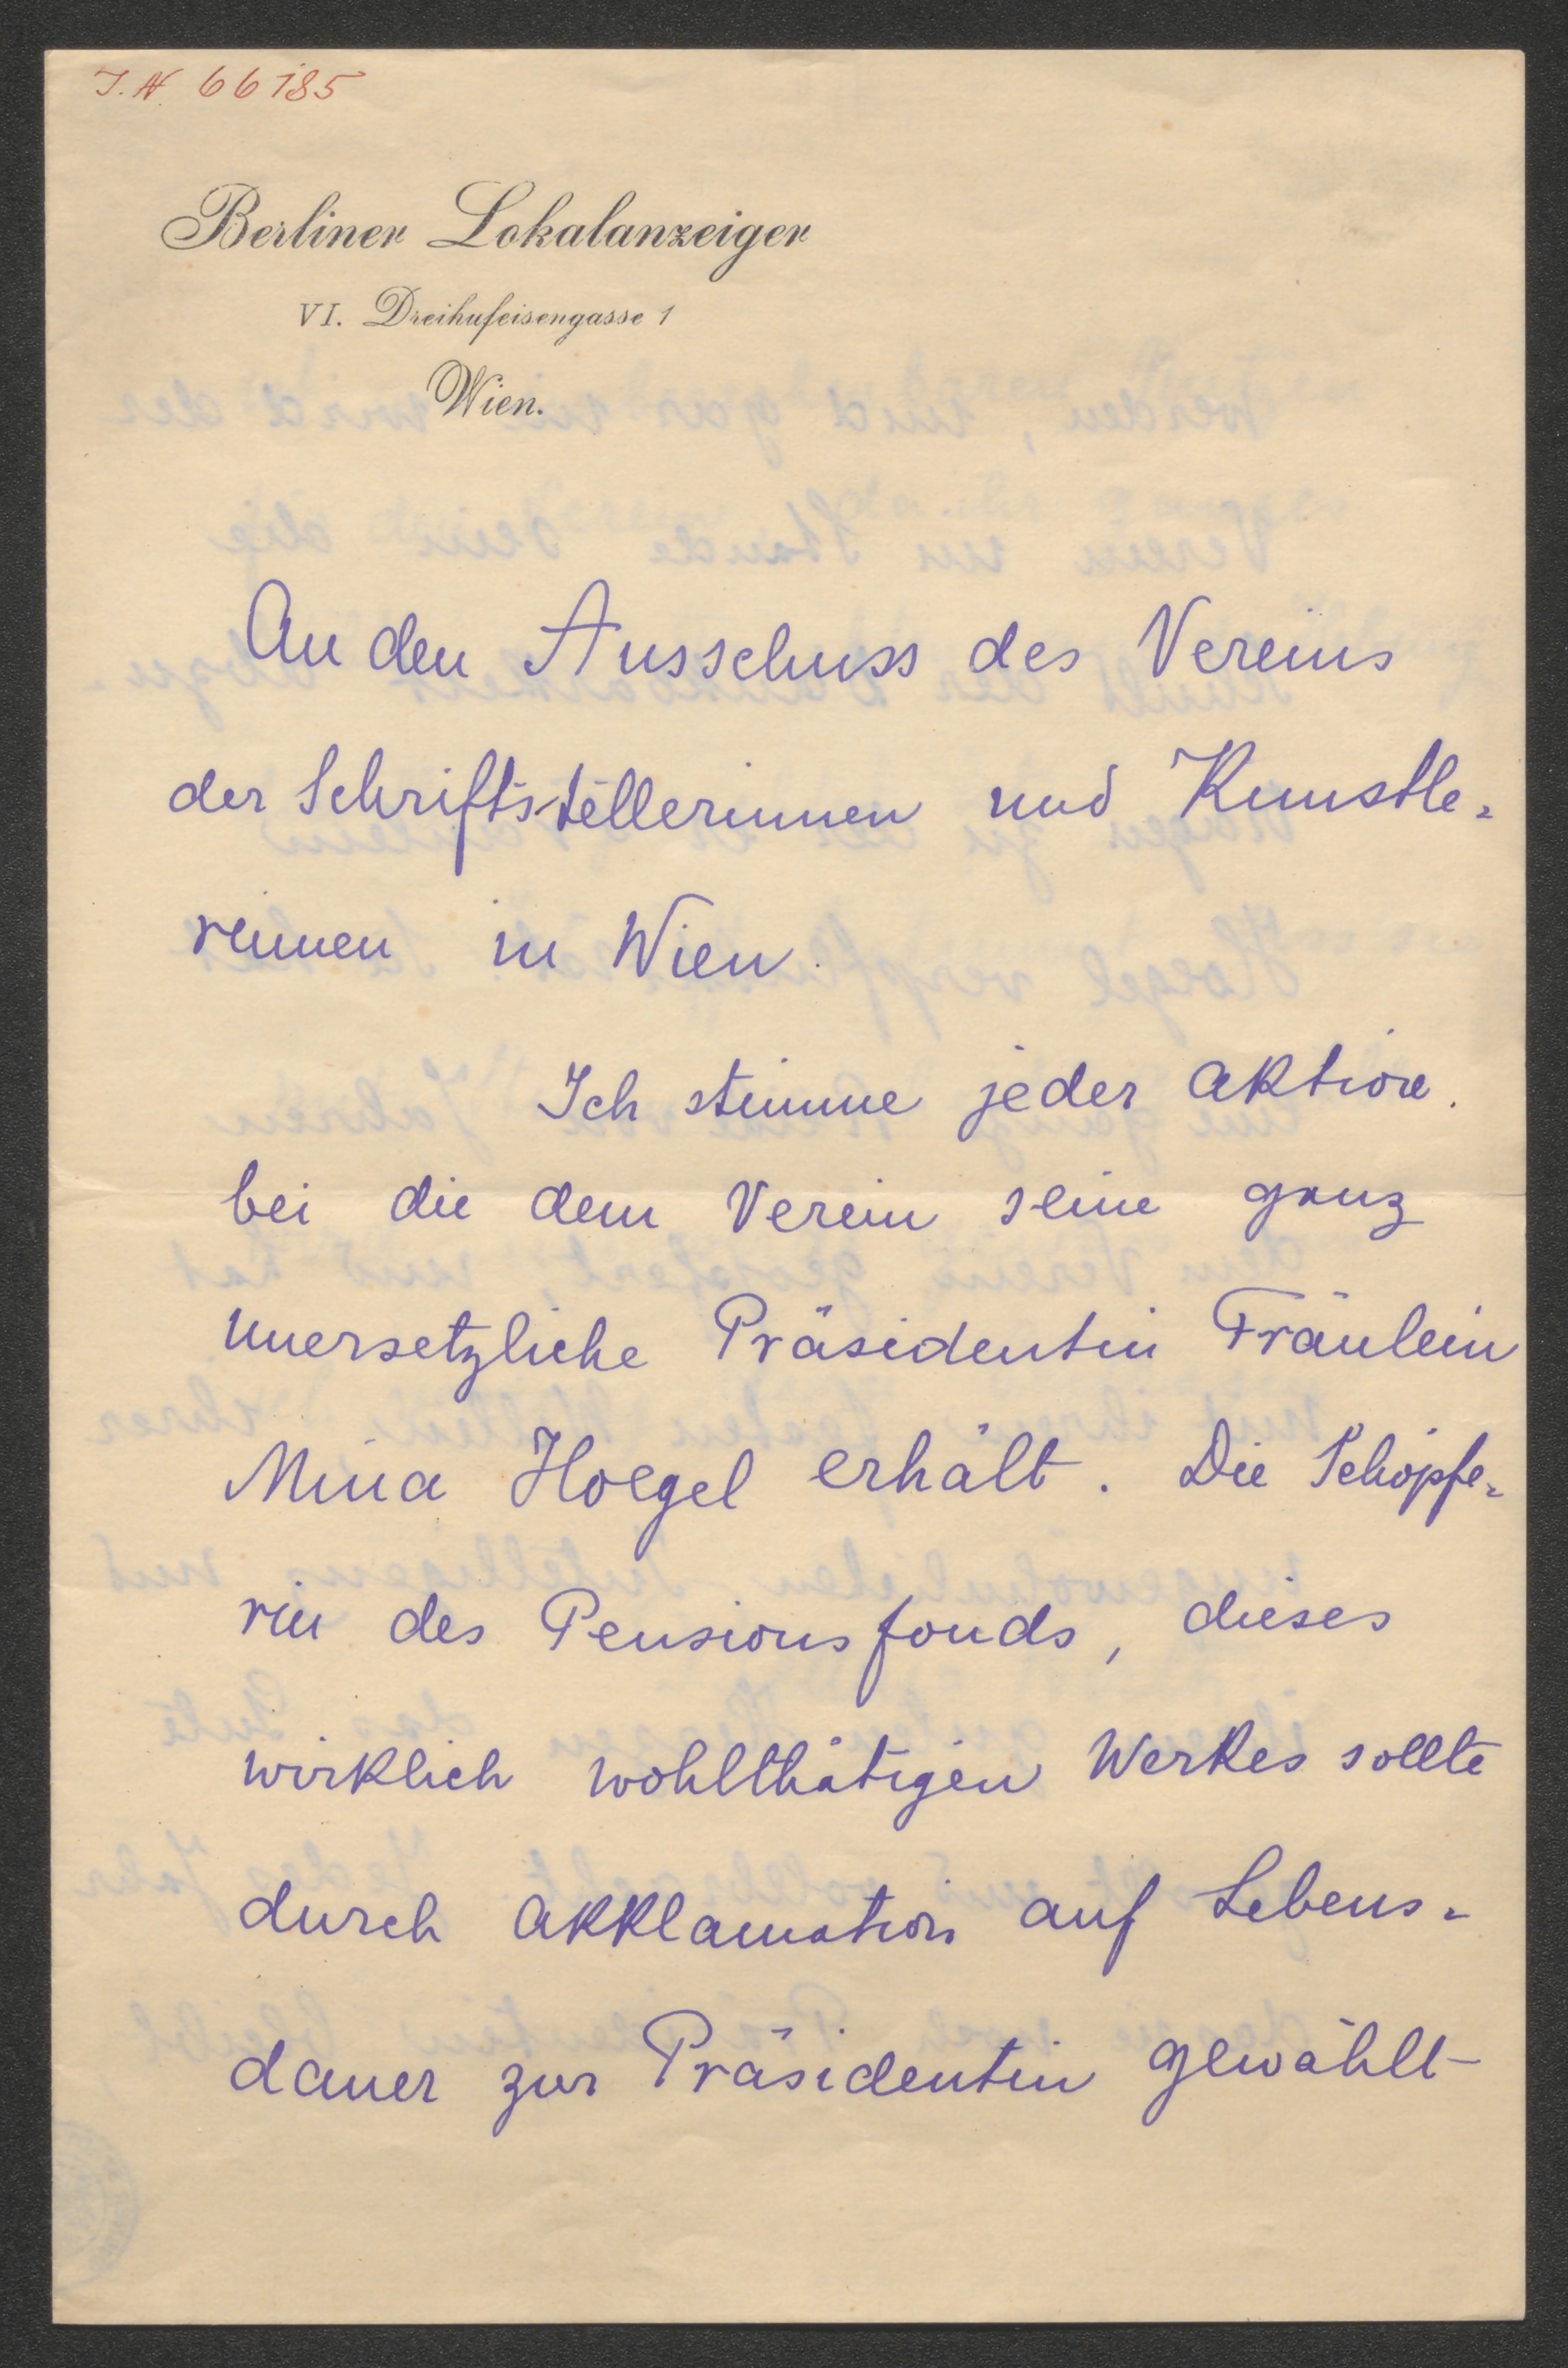 J.N. 66185
Berliner Lokalanzeiger
VI. Dreihufeisengasse 1
Wien.
An den Ausschuss des Vereins
der Schriftstellerinnen und Kunstle-
rinnen in Wien.
Ich stimme jeder Aktion
bei die dem Verein seine ganz
unersetzliche Präsidentin Fräulein
Mina Hoegel erhält. Die Schöpfe-
rin des Pensionsfonds, dieses
wirklich wohlthätigen Werkes sollte
durch Akklamation auf Lebens-
dauer zur Präsidentin gewählt